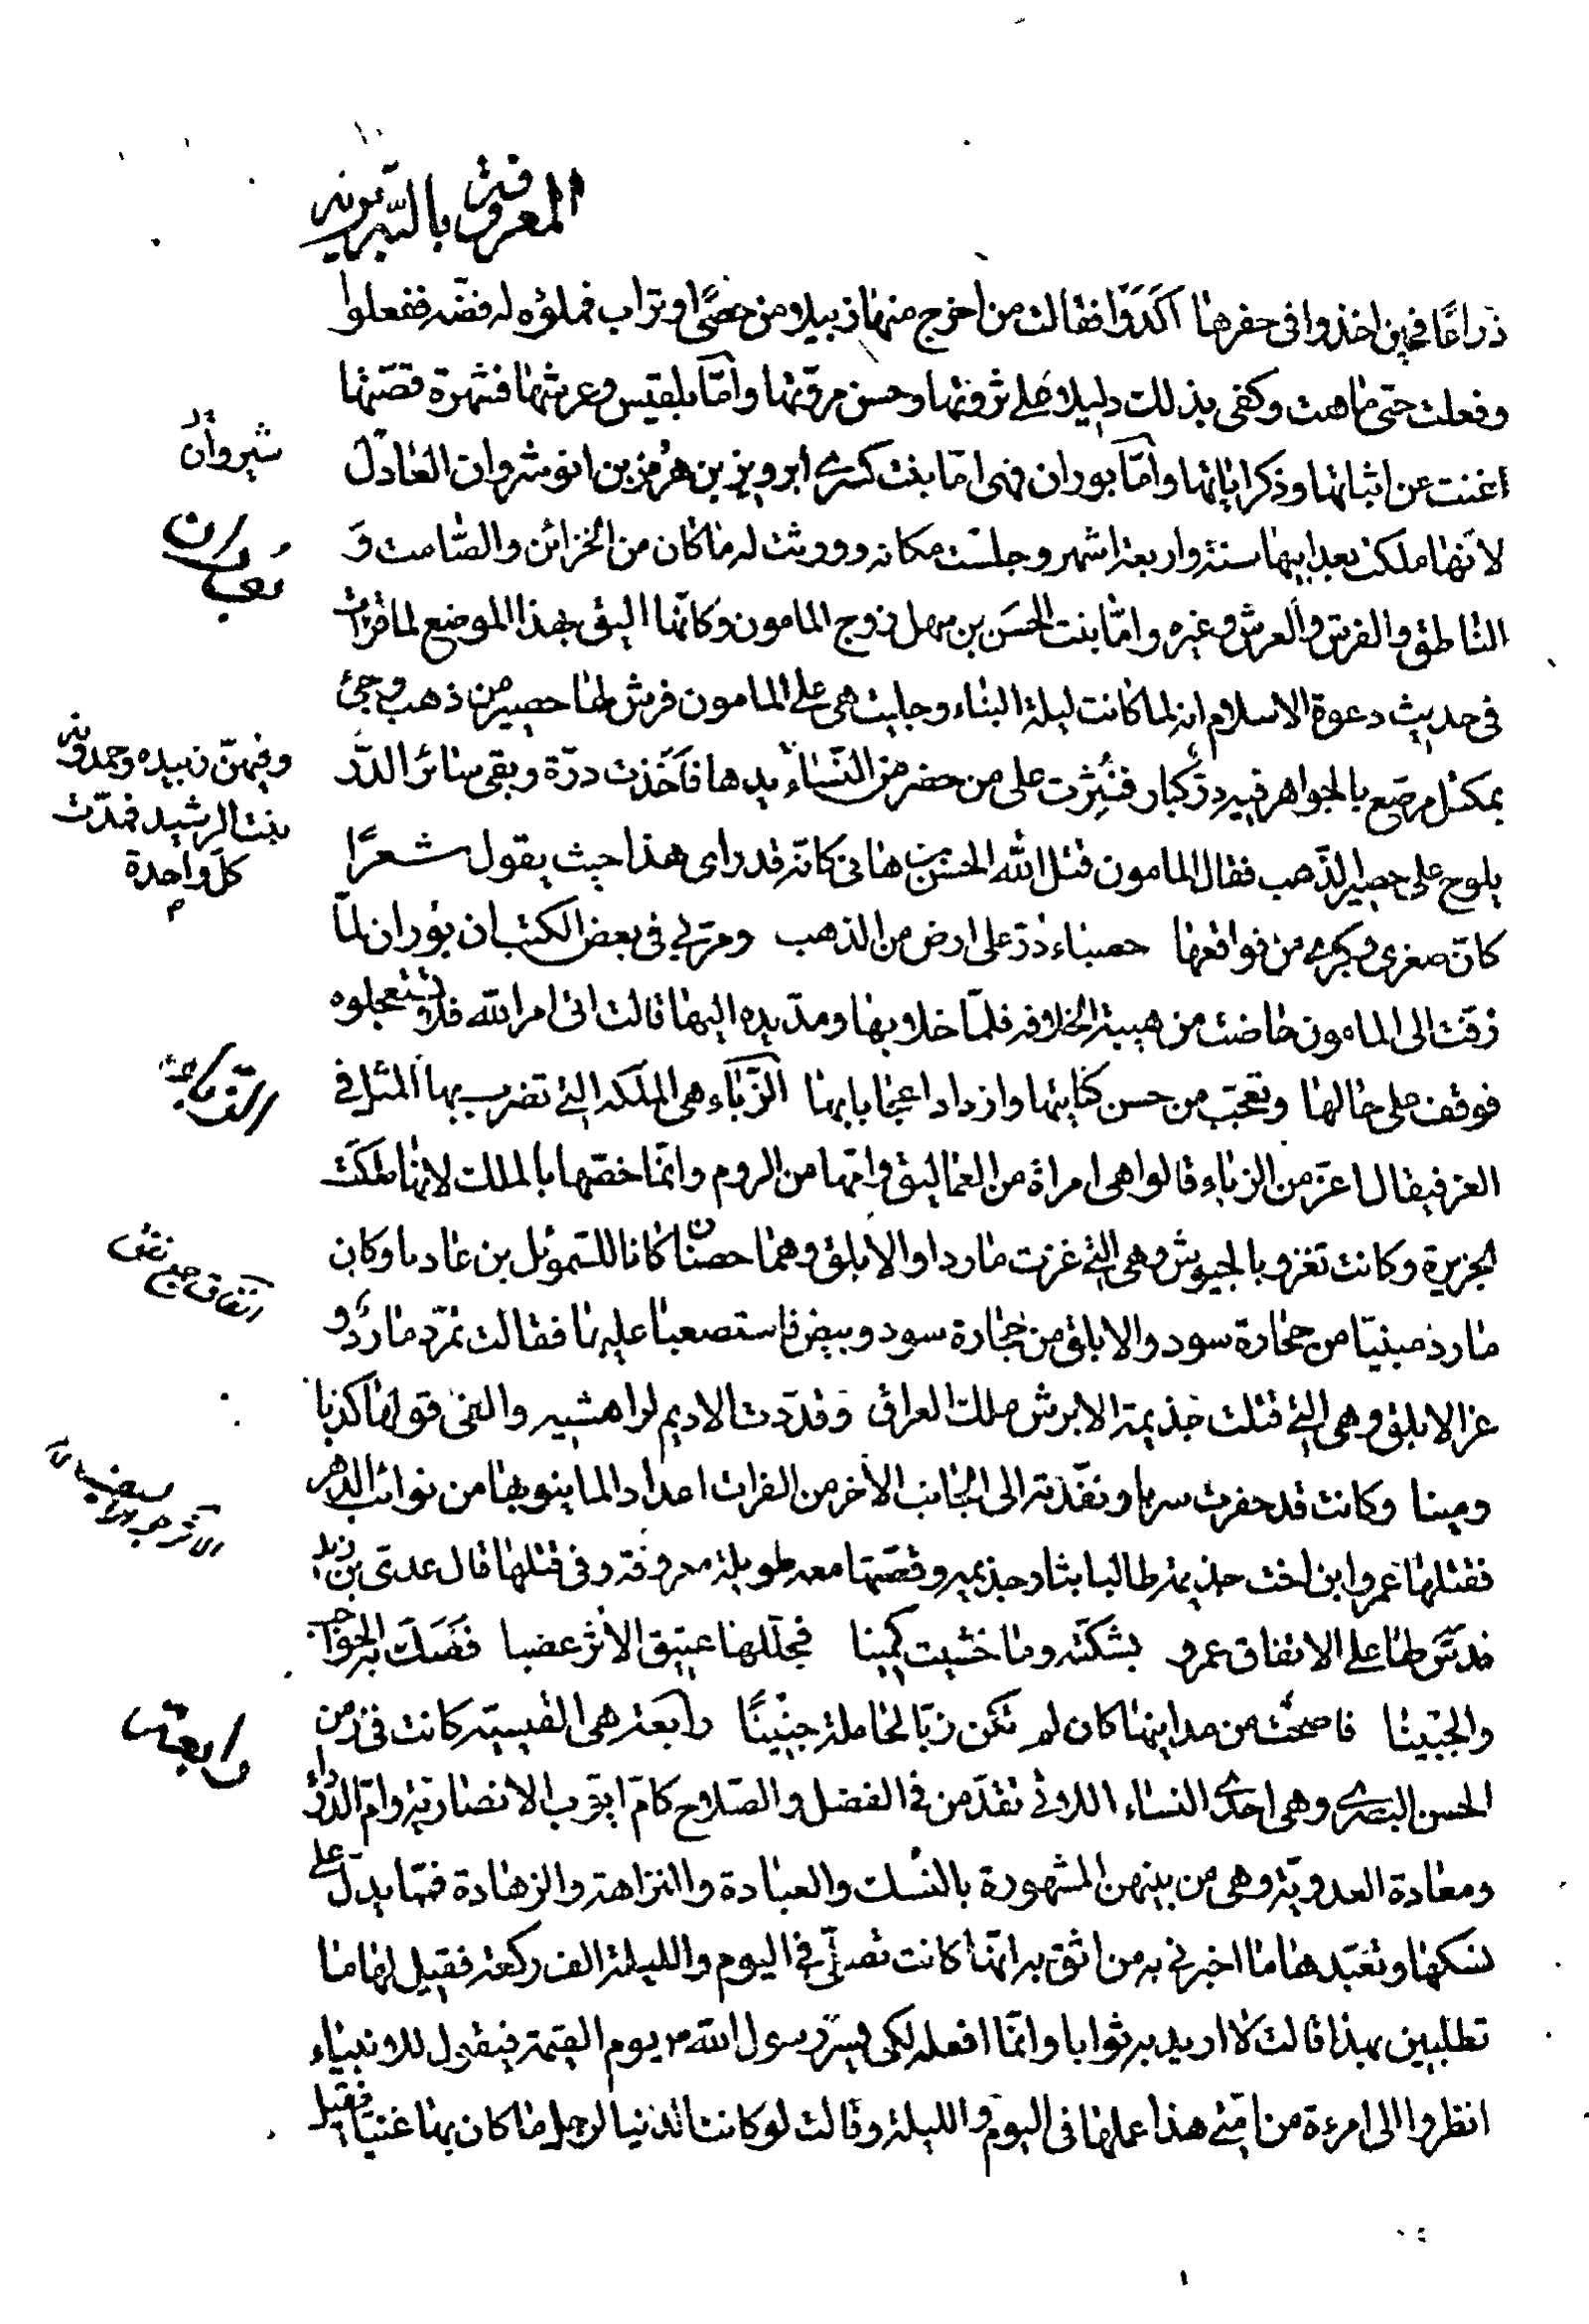 المعروفة بالتبريزية
ذراعًا فحين اخذوا فى حفرها اكدوا فقالت من اخرج منها زبيلا من حصًى او تراب نملؤه له فضّه ففعلوا
وفعلت حتى ماهت وكفى بذلك دليلا على ثروتها وحسن مروّتها وأمّا بلقيس وعرشها فشهرة قصّتها
اغنت عن اثباتها وذكر اياتها وأمّا بوران فهى امّا بنت كسرى ابرويز بن هرمز بن انوشروان العادل
شيروان
لانّها ملكت بعد ابيها سنة واربعة اشهر وجلست مكانه وورثت له ما كان من الخزائن والصّامت وَ
بوران
الناطق والفرش والعرش وغيره وامّا بنت الحسَن بن سهل زوج المامون وكانّها اليق بهذا الموضع لما قرأت
فى حديث دعوة الاسلام انه لما كانت ليلة البناء وجليت هى على المامون فرش لها حصير من ذهب وجئ
بمكتل مرصّع بالجواهر فيه درّ كبار فنُثِرت على من حضر من النّساء يدها فاَخَذت درّة وبقى سائر الدّرّ
وفيهنّ زبيده وحمدونه
بنت الرشيد فمدّت
كلّ واحدة
يلوح على حصير الذّهب فقال المامون قتل الله الحسن بن هانى كانّه قد راى هذا حيث يقول شعرًا
كانّ صغرى وكبرى من فواقعها حصباء درّ على ارض من الذهب ومرّ بى فى بعض الكتب ان بوران لمّا
زفّت الى المامون حاضت من هيبة الخلافه فلمّا خلا بها ومدّ يده اليها قالت اتى امر الله فلا تستعجلوه
فوقف على حالها وتعجّب من حسن كنايتها وازداد اعجابا بها الزّبّاء هى الملكه التى تضرب بها المثل فى
الزباء
العز فيقال اعزّ من الزباء قالوا هى امراة من العماليق وامّها من الروم وانّما خصّها بالملك لانها ملكَت
الجزيرة وكانت تغزو بالجيوش وهى التى غزت ماردا والابلق وهما حصنان كانا للسّموئل بن عاديا وكان
مارد مبنيّا من حجارة سود والابلق من حجارة سود وبيض فاستصعبا عليها فقالت تمرّد ماردٌ و
عزّ الابلق وهى التى قتلت جذيمة الابرش ملك العراق وقدّدت الاديم لراهشيه والفى قولها كذبا
ومينا وكانت قد حفرت سربا ونفّذته الى الجانب الاخر من الفرات اعدادا لما ينوبها من نوائب الدهر
فقتلها عمرو ابن اخت جذيمة طالبا بثار جذيمه وقصّتها معه طويلة معروفة وفى قتلها قال عدىّ بن زيد
فدسّ لها على الانفاق عمرو بشكّته وما خشيت كمينا فجلّلها عتيق الاثر عضبا فصَلت به الحواجب
والجبينا فاضحت من مداينها كان لم تكن زبّا لحاملة جنينًا رابعة هى القيسيّه كانت فى زمن
رابعة
الحسن البصرى وهى احدى النساء اللاتى تقدّمن فى الفضل والصّلاح كامّ ايّوب الانصارية وامّ الدّرداء
ومعاذة العدويّة وهى من بينهن المشهورة بالنّسك والعبادة والنزاهة والزهادة فممّا يدلّ على
نسكها وتعبّدها ما اخبرنى به من اثق به انّها كانت تصلّى فى اليوم والليلة الف ركعة فقيل لها ما
تطلبين بهذا قالت لا اريد به ثوابا وانّما افعله لكى يسرّ رسول الله ص يوم القيمة فيقول للانبياء
انظروا الى امرءة من امّتى هذا عملها فى اليوم والليلة وقالت لو كانت الدنيا لرجل ما كان بها غنيّا فقيل